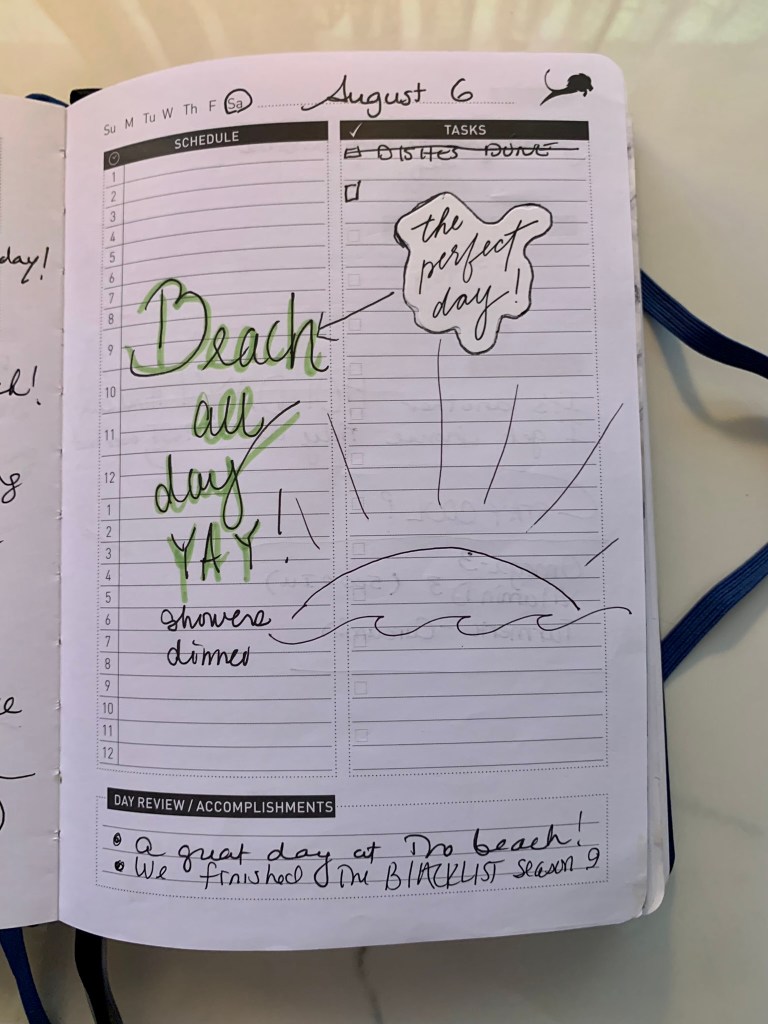 Su M Tu W Th F Sa August 6
SCHEDULE
1
2
3
4
5
6
7
8
9
10
11
12
1
2
3
4
5
6
7
8
9
10
11
12
Beach
all
day
YAY!
showers
dinner
TASKS
DISHES DONE
the
perfect
day!
DAY REVIEW / ACCOMPLISHMENTS
• A great day at The beach!
• We finished The BlACKLIST season 9
day!